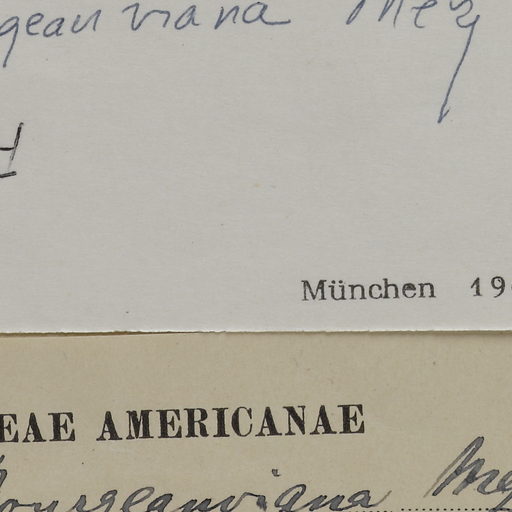 geauviana Mez
H
München 19
EAE AMERICANAE
ourgeauviana Mez